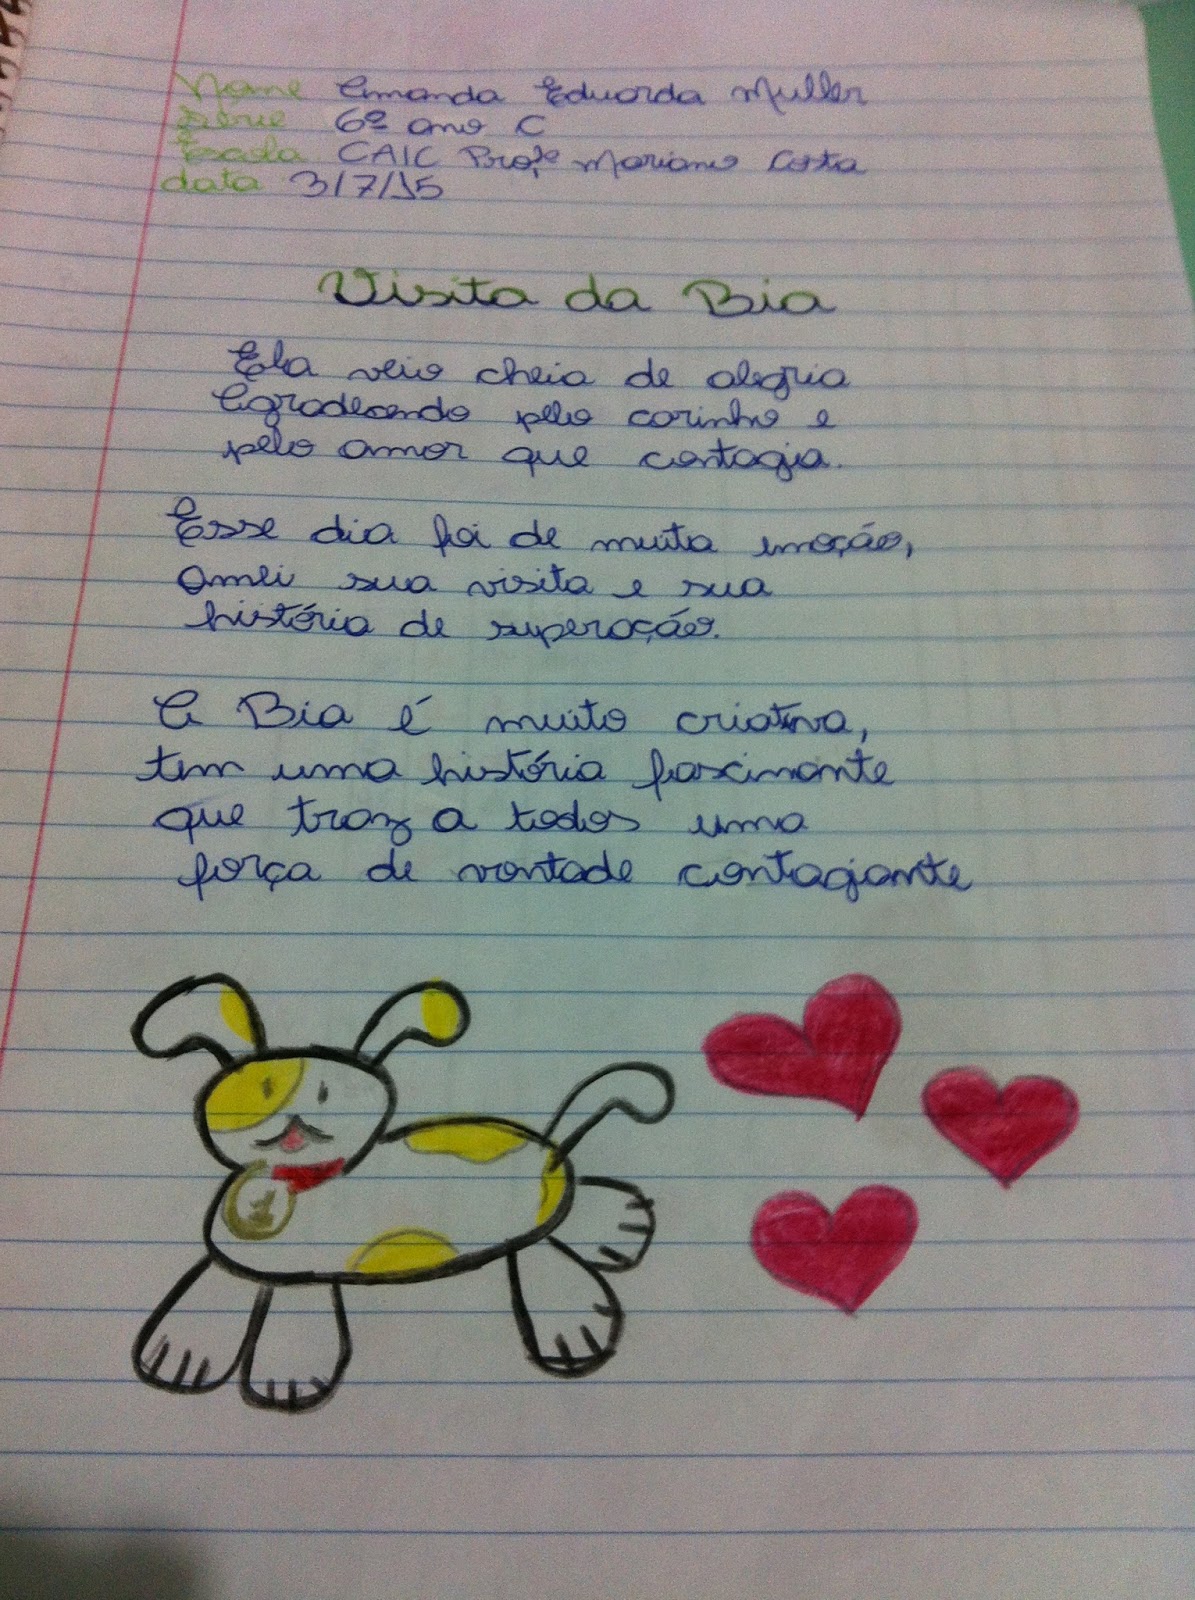 Nome Amanda Eduarda Muller
Série 6º ano C
Escola CAIC Profº Mariano Costa
data 3/7/15
Visita da Bia
Ela veio cheia de alegria
Agradecendo pelo carinho e
pelo amor que contagia.
Esse dia foi de muita emoção,
amei sua visita e sua
história de superação.
A Bia é muito criativa,
tem uma história fascinante
que traz a todos uma
força de vontade contagiante